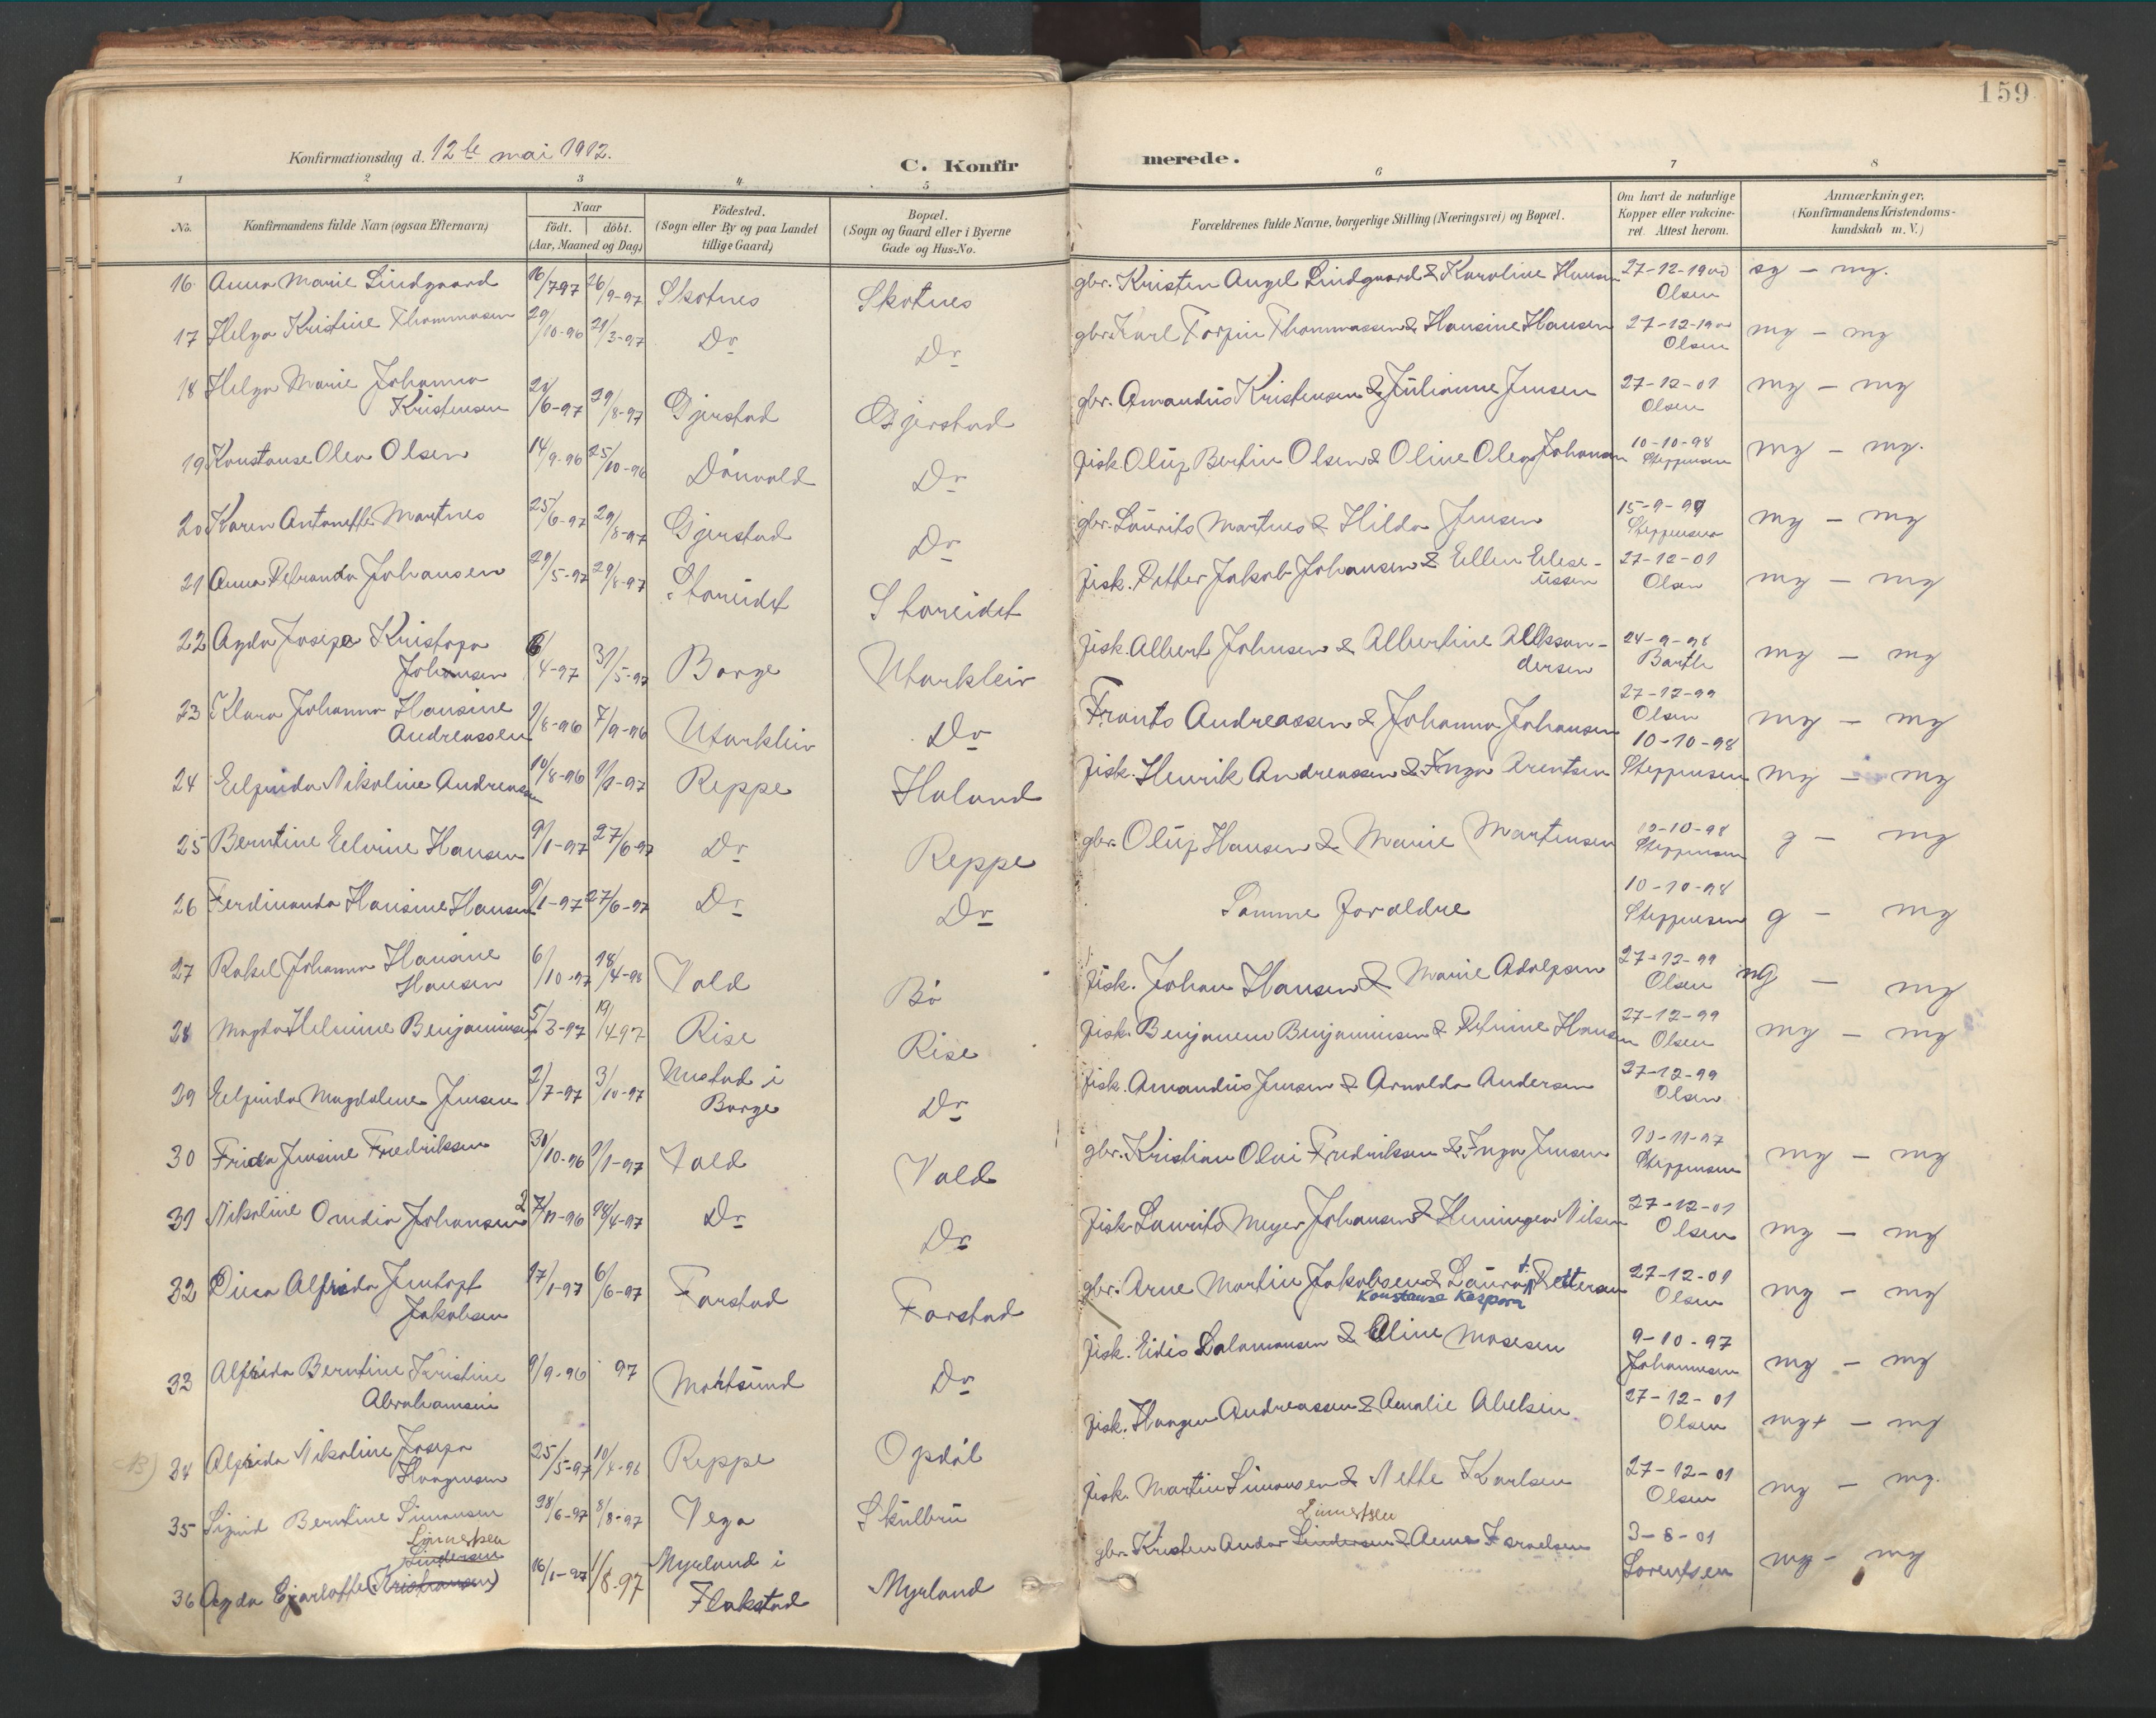 159
Konfirmationsdag d. 12te mai 1912.
C. Konfir
merede.
1 2 3 4 5 6 7 8
No. Konfirmandens fulde Navn (ogsaa Efternavn) Naar födt. döbt. (Aar, Maaned og Dag) Födested. (Sogn eller By og paa Landet tillige Gaard) Bopæl. (Sogn og Gaard eller i Byerne Gade og Hus-No. Forældrenes fulde Navne, borgerlige Stilling (Næringsvei) og Bopæl. Om havt de naturlige Kopper eller vakcineret. Attest herom. Anmærkninger, (Konfirmandens Kristendomskundskab m. V.)
16 Anna Marie Lindgaard 16/7 97 26/9-97 Skotnes Skotnes gbr. Kristen Angel Lindgaard & Karoline Hansen 27-12-1900 Olsen sg - mg.
17 Helga Kristine Thommasen 29/10-96 21/3-97 Do Do gbr. Karl Torfin Thommassen & Hansine Hansen 27-12-1900 Olsen mg - mg
18 Helga Marie Johanna
Kristensen 28/6-97 29/8-97 Gjerstad Gjerstad gbr. Amandus Kristensen & Julianne Jensen 27-12-01 Olsen mg - mg
19 Konstanse Olea Olsen 14/9-96 25/10-96 Dönvold Do fisk. Oluf Bertin Olsen & Oline Olea Johansen 10-10-98 Steffensen mg - mg.
20 Karen Antonette Martnes 25/6-97 29/8-97 Gjerstad Do gbr. Laurits Martnes & Hilda Jensen 15-9-99 Steffensen mg - mg
21 Anna Petranda Johansen 29/5-97 29/8-97 Storeidet Storeidet fisk. Petter Jakob Johansen & Ellen Eliseussen 27-12-01 Olsen mg - mg
22 Agda Josefa Kristofa
Johansen 6/4-97 31/5-97 Borge Utakleiv fisk. Albert Johnsen & Albertine Alleksandersen 24-9-98 Barth mg - mg
23 Klara Johanna Hansine
Andreassen 9/8-96 7/9-96 Utakleiv Do Frants Andreassen & Johanna Johansen 27-12-99 Olsen mg - mg
24 Elfrida Nikoline Andreasen 10/8-96 1/1-97 Reppe Haland fisk. Henrik Andreassen & Inga Arentsen 10-10-98 Steffensen mg - mg
25 Berntine Elvine Hansen 9/1-97 27/6-97 Do Reppe gbr. Oluf Hansen & Marie Martinsen 10-10-98 Steffensen g - mg
26 Ferdinanda Hansine Hansen 9/1-97 27/6-97 Do Do Samme Foreldre 10-10-98 Steffensen g - mg
27 Rakel Johanna Hansine
Hansen 6/10-97 18/4-98 Vold Bö fisk. Johan Hansen & Marie Adolfsen 27-12-99 Olsen mg - mg
28 Magda Helmine Benjaminsen 5/3-97 19/4 97 Rise Rise fisk. Benjamin Benjaminsen & Petrine Hansen 27-12-99 Olsen mg - mg
29 Elfrida Magdalene Jensen 2/7-97 3/10-97 Unstad i Borge Do fisk. Amandus Jensen & Arnolda Andersen 27-12-99 Olsen
30 Frida Jensine Fredriksen 30/10-96 1/1-97 Vold Vold gbr. Kristian Olai Fredriksen & Inga Jensen 10-11-97 Steffensen mg - mg
31 Nikoline Ovidia Johansen 27/11-96 18/4-97 Do Do fisk. Laurits Meyer Johansen & Henninga Nilsen 27-12-01 Olsen mg - mg
32 Disa Alfrida Jentoft
Jakobsen 17/1-97 6/6-97 Farstad Farstad gbr. Arne Martin Jakobsen & Laura Pettersen 27-12-01 Olsen mg - mg
Konstanse Kaspara
33 Alfrida Berntine Kristine
Abrahamsen 9/9-96 97 Mortsund Do fisk. Eidis Salamonsen & Oline Mosesen 9-10-97 Johannesen mg - mg
34 Alfrida Nikoline Josefa
Haagensen 25/5-97 10/4-98 Reppe Opdöl fisk. Haagen Andreassen & Amalie Abelsen 27-12-01 Olsen mg+ - mg
35 Sigrid Berntine Simonsen 28/6-97 8/8-97 Vega Skulbru fisk. Martin Simonsen & Nette Karlsen 27-12-01 Olsen mg - mg.
36 Agda Charlotte (Kristiansen) 16/1-97 1/8-97 Myrland i Flakstad Myrland gbr. Kristen Andor Lindersen & Anna Israelsen 3-8-01 Lorentsen mg - mg